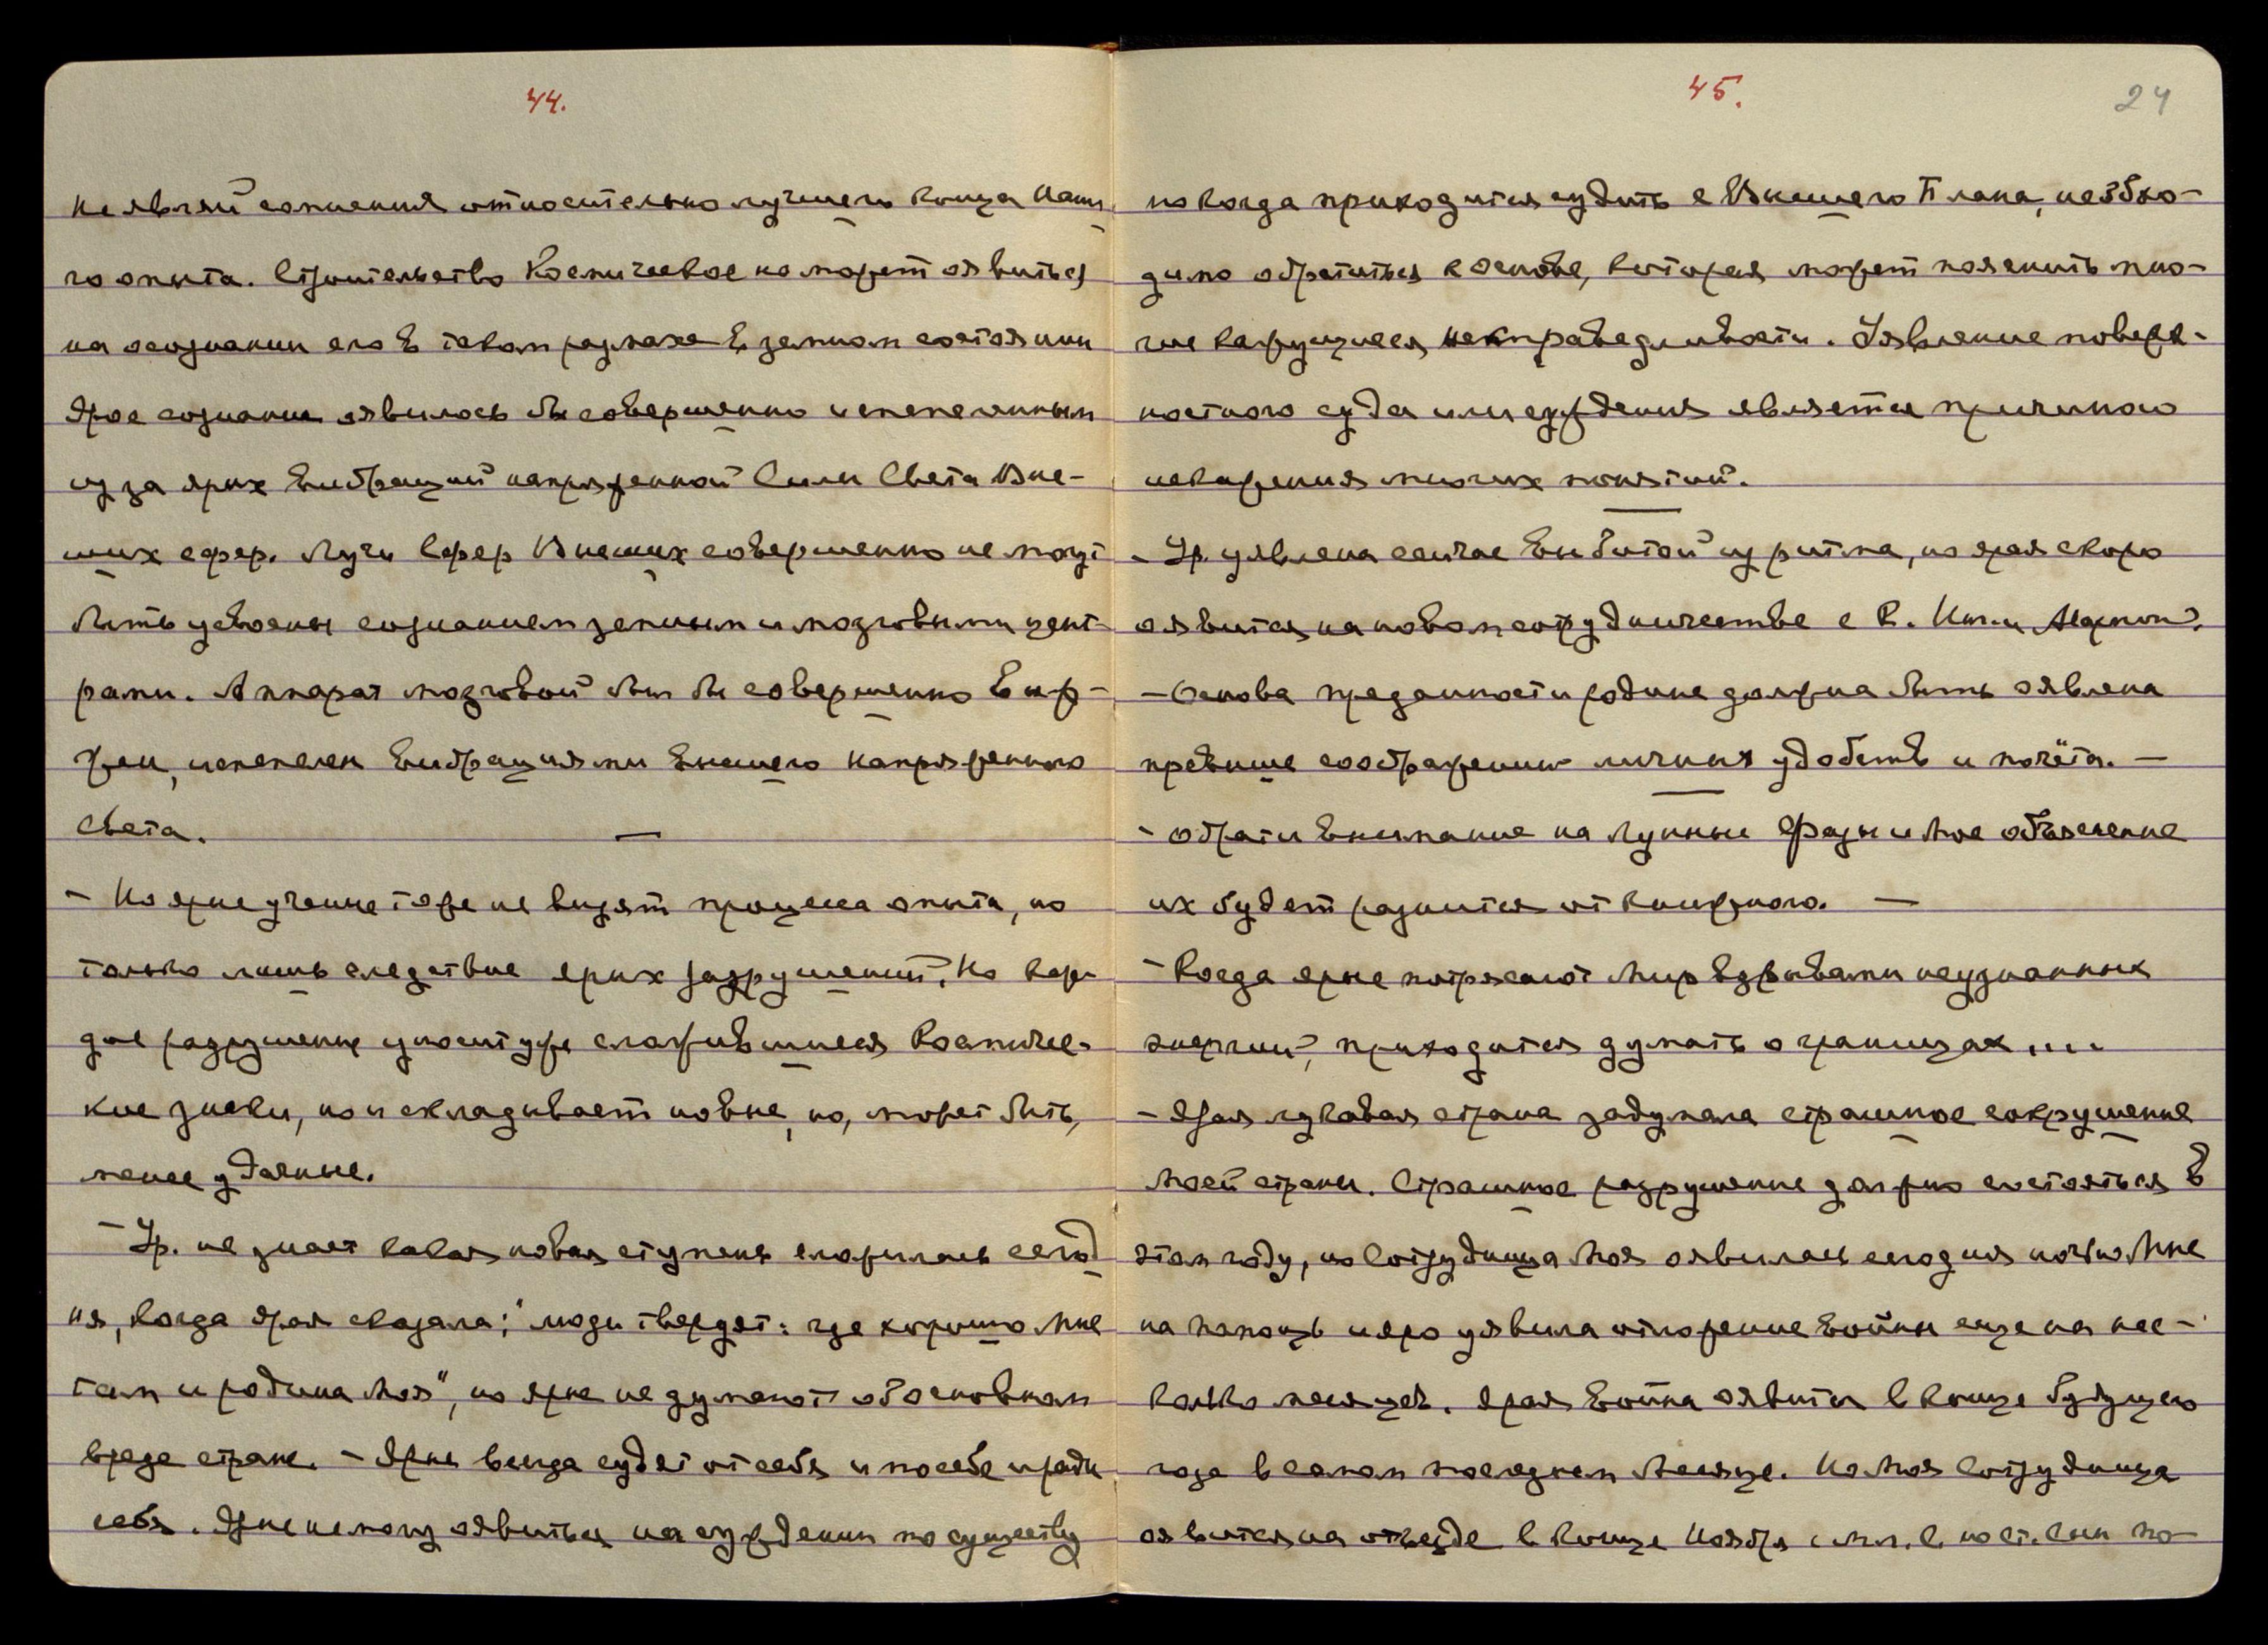 44.
не являй сомнения относительно лучшего конца Наше-
го опыта. Строительство Космическое не может оявиться
на осознании его в таком размахе в земном состоянии
Ярое сознание оявилось бы совершенно испепеленным
из за ярых вибраций напряженной Силы Света Выс-
ших сфер. Лучи Сфер Высших совершенно не могут
быть усвоены сознанием земным и мозговыми цент-
рами. Аппарат мозговой был бы совершенно
испепелен вибрациями высшего напряженного
Света. —
- Но ярые ученые тоже не видят процесса опыта, но
только лишь следствие ярых разрушений. Но каж-
дое разрушение уничтожает сложившиеся Космичес-
кие знаки, но и складывает новые, но, может быть,
менее удачные.
- Ур. не знает какая новая ступень сложилась сегод
ня, когда ярая сказала: "люди твердят: где хорошо мне
там и родина моя", но ярые не думают об основном
вреде стране. - Ярые всегда судят от себя и по себе и ради
себя. Ярые не могу оявиться на суждении по существу
45.
24
но когда приходится судить с Высшего Плана, необхо-
димо обратиться к Основе, которая может пояснить мно-
гие кажущиеся несправедливости. Уявление поверх-
ностного суда или суждения является причиною
искажения многих понятий.
- Ур. уявлена сейчас выбитой из ритма, но ярая скоро
оявится на новом сотрудничестве с К. Им. и
- Основа преданности родине должна быть оявлена
превыше соображений личных удобств и почёта. —
- обрати внимание на Лунные Фазы и Мое объяснение
их будет разниться от книжного. —
- Когда ярые потрясают Мир взрывами неузнанных
энергий, приходится думать о границах....
- Ярая лукавая страна задумала страшное сокрушение
Моей страны. Страшное разрушение должно состояться в
этом году, но Сотрудница Моя оявилась сегодня ночью Мне
на помощь и яро уявила отложение войны еще на нес-
колько месяцев. Ярая война оявится в конце будущего
года в самом последнем Месяце. Но Моя Сотрудница
оявится на отъезде в конце Ноября с